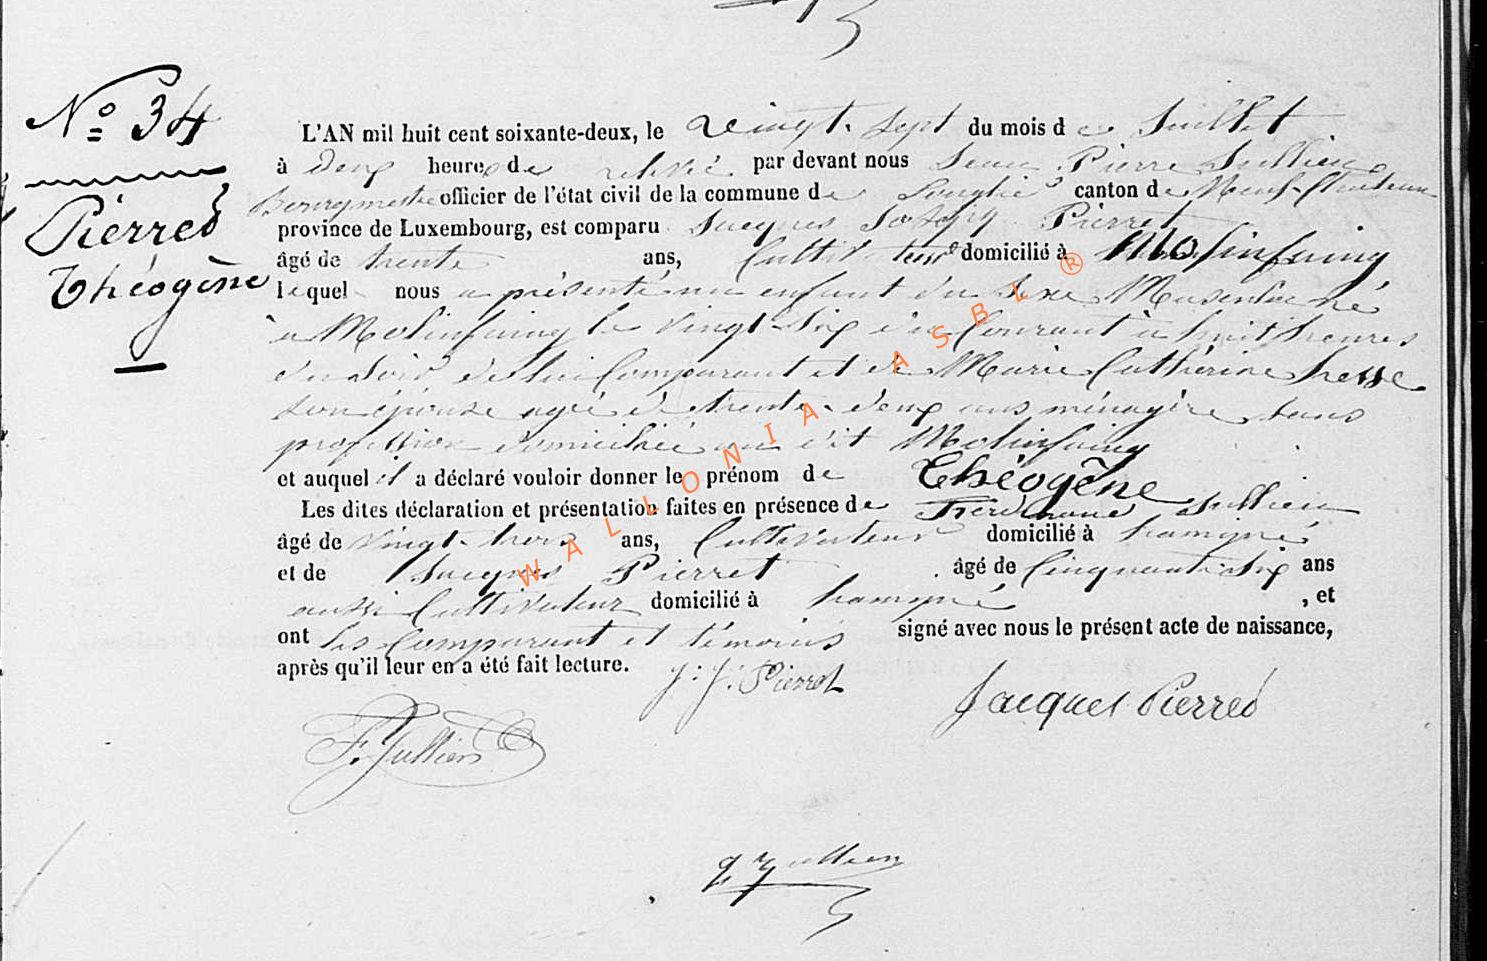 N° 34
Pierret
Théogène
L'AN mil huit cent soixante-deux, le vingt-sept du mois de Juillet
à deux heures de relevée par devant nous Jean Pierre Jullien
Bourgmestre officier de l'état civil de la commune de Longlier canton de Neuf-Chateau
province de Luxembourg, est comparu Jacques Joseph Pierret
âgé de trente ans, Cultivateur domicilié à Molinfaing
lequel nous a présenté un enfant du Sexe Masculin né
à Molinfaing le vingt-Six du Courant à huit heures
du Soir, de lui Comparant et de Marie Catherine hesse
son épouse agée de trente-deux ans ménagère sans
profession domiciliée au dit Molinfaing
et auquel il a déclaré vouloir donner le prénom de Théogène
Les dites déclaration et présentation faites en présence de Ferdinand Jullien
âgé de vingt-trois ans, Cultivateur domicilié à hamipré
et de Jacques Pierret âgé de Cinquante Six ans
aussi Cultivateur domicilié à hamipré , et
ont les Comparant et témoins signé avec nous le présent acte de naissance,
après qu'il leur en a été fait lecture.
J: J: Pierret
Jacques Pierret
F. Jullien
Jullien
WALLONIA ASBL ®